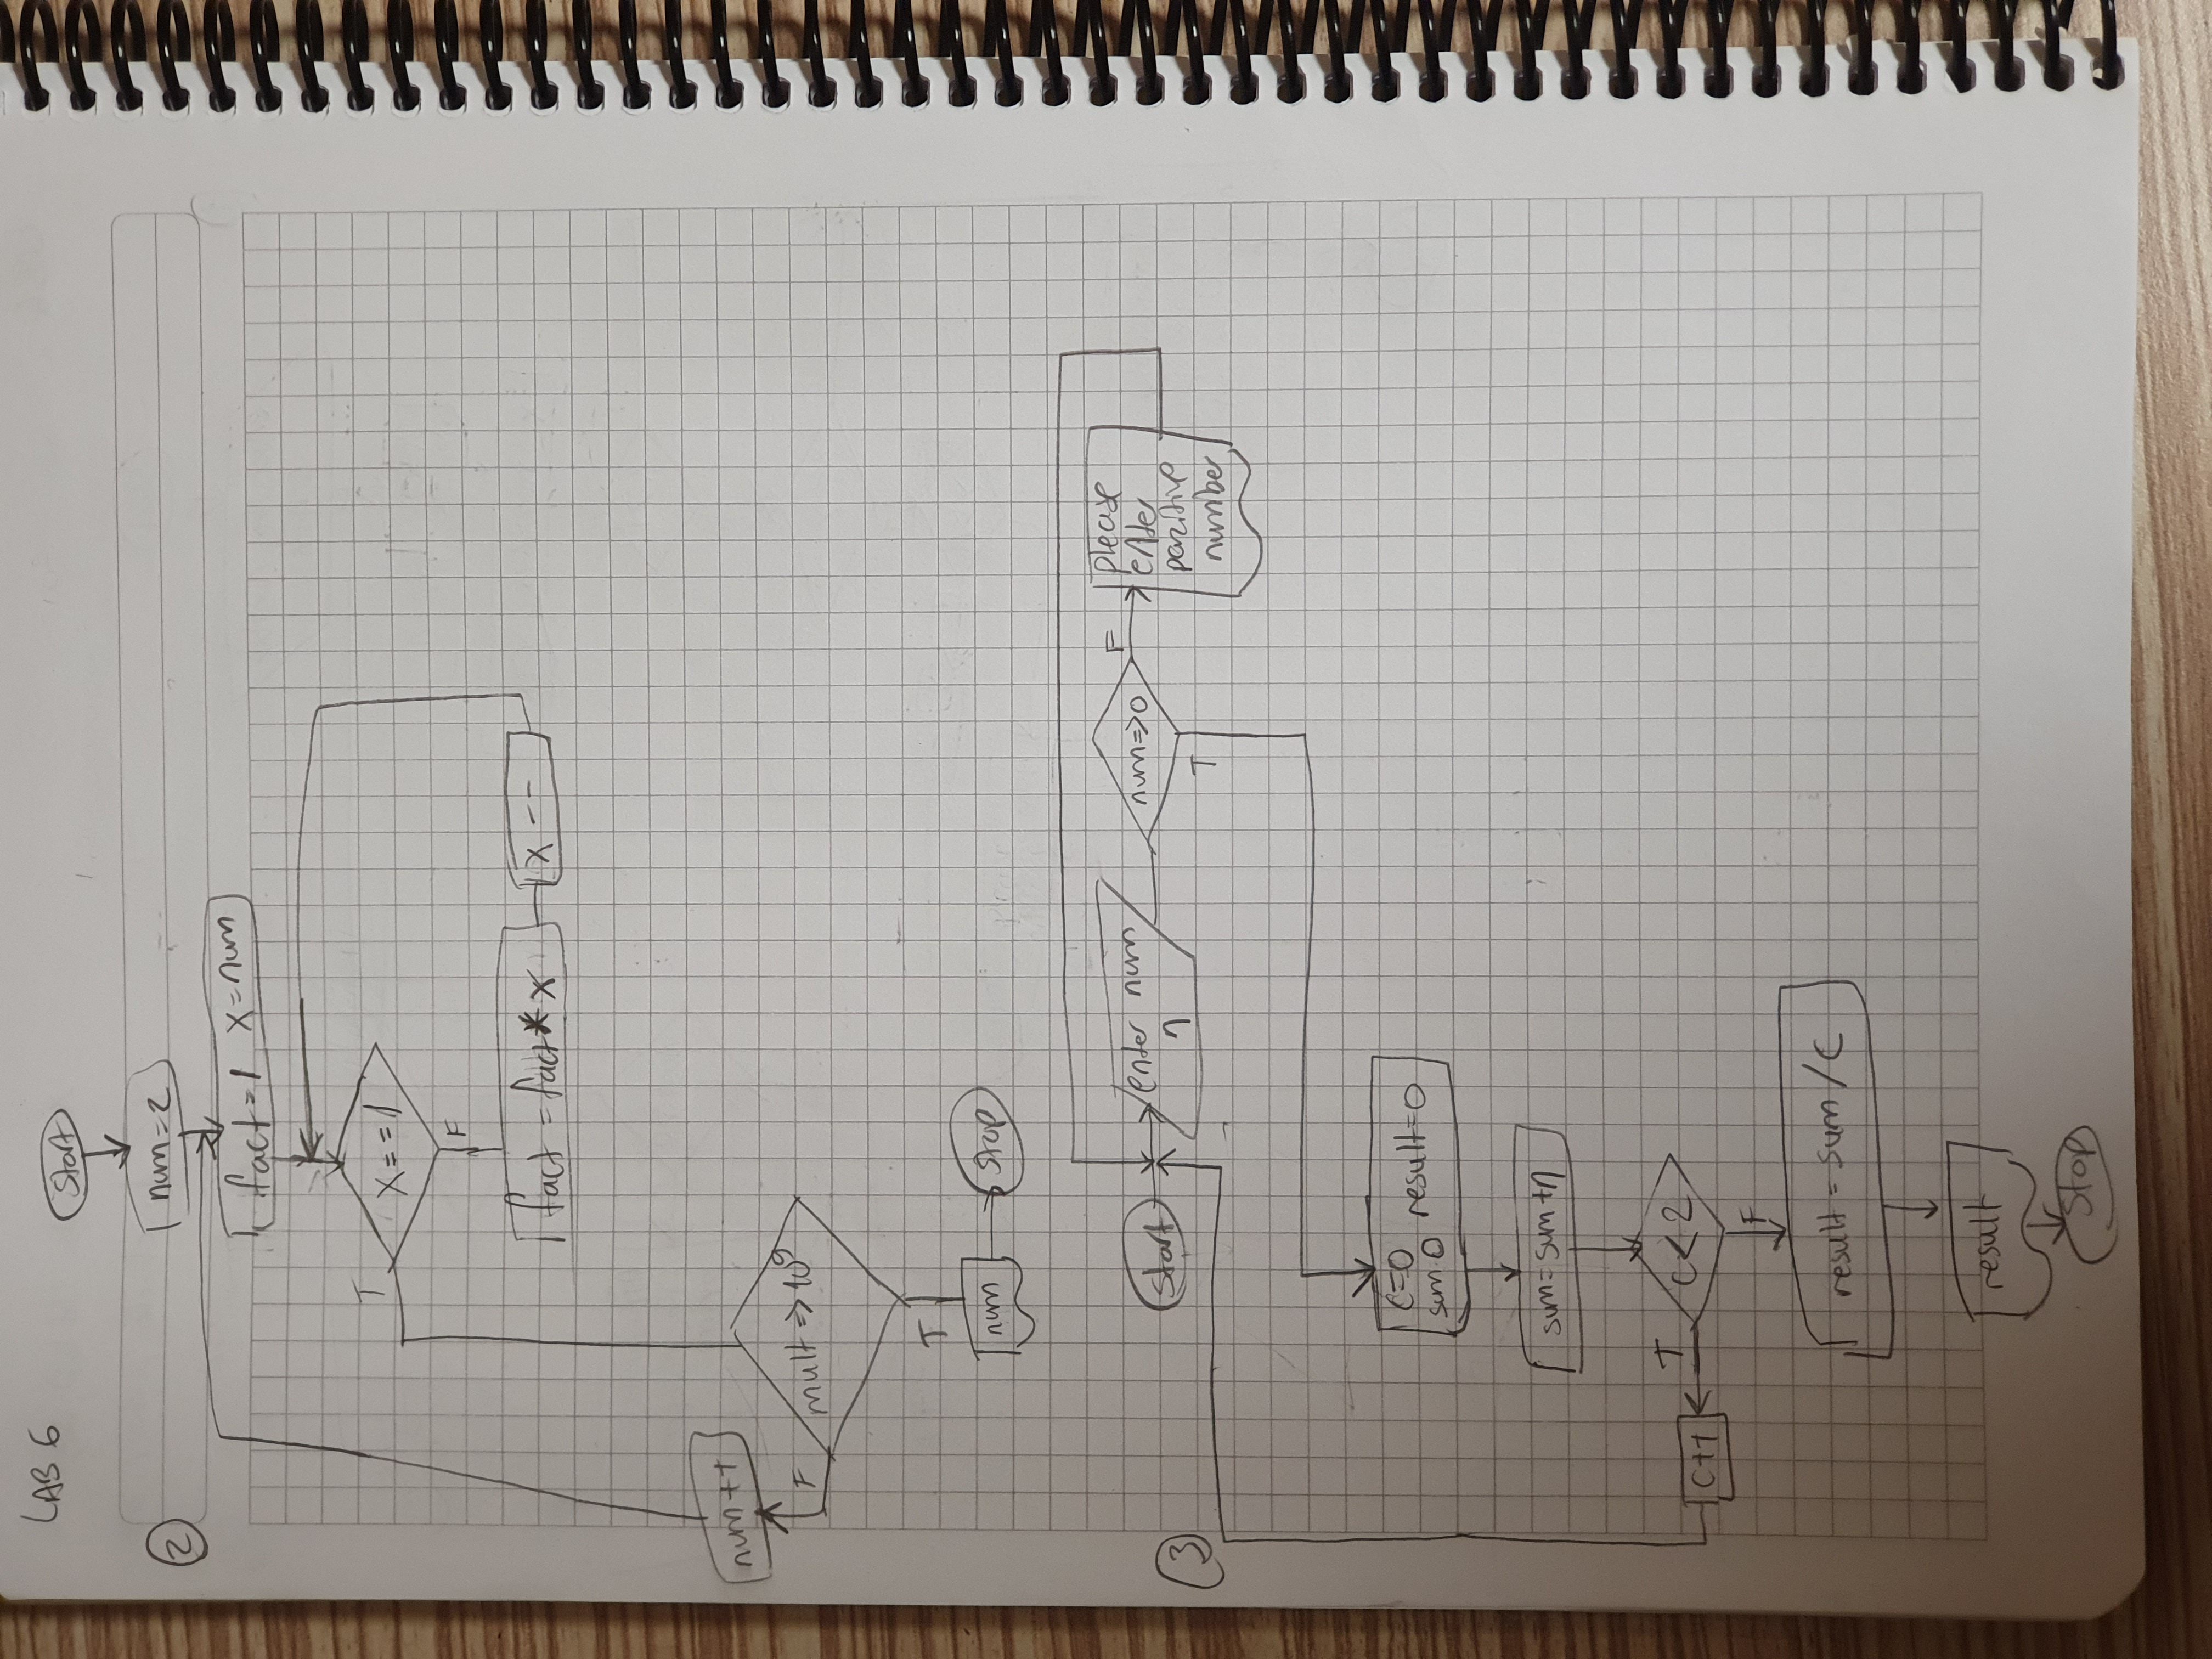 LAB 6
Start
2
num=2
fact=1 x=num
T
x==1
F
fact = fact * x
x --
num++
F
mult => 10⁹
T
num
stop
3
start
enter num
n
num=>0
F
please
enter
pozitive
number
T
c=0
sum 0
result=0
sum=sum+n
T
c<2
c++
F
result = sum / c
result
stop